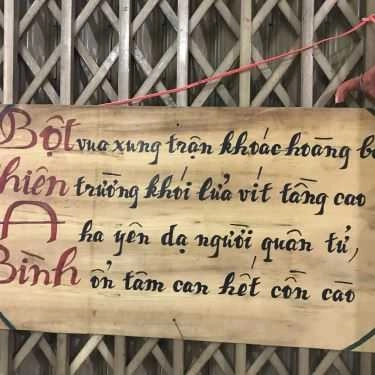 Bột vua xung trận khoác hoàng b
hiên trường khói lửa vít tầng cao
A ha yên dạ người quân tử,
Bình ổn tâm can hết cồn cào